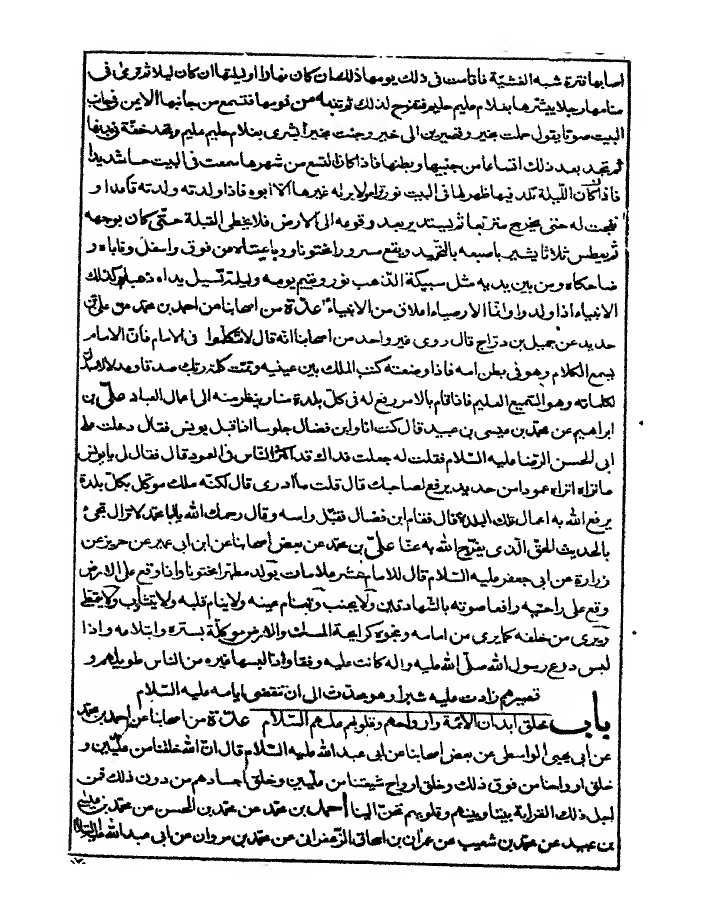 اصابها فترة شبه الغشية فاقامت فى ذلك يومها ذلك ان كان نهارا او ليلتها ان كان ليلا ثم ترى فى
منامها رجلا يبشرها بغلام عليم حليم فتفرح لذلك ثم تنتبه من نومها فتسمع من جانبها الايمن فى جانب
البيت صوتا يقول حملت بخير وتصيرين الى خير وجئت بخير ابشرى بغلام حليم عليم وتجد خفة فى بدنها
ثم تجد بعد ذلك اتساعا من جنبيها وبطنها فاذا كان لتسع من شهرها سمعت فى البيت حسا شديدا
فاذا كان الليلة تلد فيها ظهر لها فى البيت نور تراه لا يراه غيرها الا ابوه فاذا ولدته ولدته قاعدا و
تفتحت له حتى يخرج متربعا ثم يستدير بعد وقوعه الى الارض فلا يخطى القبلة حتى كان بوجهه
ثم يعطس ثلاثا يشير باصبعه بالتحميد ويقع مسرورا مختونا ورباعيتاه من فوق واسفل وناباه و
ضاحكاه ومن بين يديه مثل سبيكة الذهب نور ويقيم يومه وليلته تسيل يداه ذهبا وكذلك
الانبياء اذا ولدوا وانما الاوصياء اعلاق من الانبياء عدة من اصحابنا عن احمد بن محمد عن على بن
حديد عن جميل بن دراج قال روى غير واحد من اصحابنا انه قال لا تتكلموا فى الامام فان الامام
يسمع الكلام وهو فى بطن امه فاذا وضعته كتب الملك بين عينيه وتمت كلمة ربك صدقا وعدلا لا مبدل
لكلماته وهو السميع العليم فاذا قام بالامر رفع له فى كل بلدة منار ينظر منه الى اعمال العباد على بن
ابراهيم عن محمد بن عيسى بن عبيد قال كنت انا وابن فضال جلوسا اذ اقبل يونس فقال دخلت على
ابى الحسن الرضا عليه السلام فقلت له جعلت فداك قد اكثر الناس فى العمود قال فقال لى يا يونس
ما تراه اتراه عمودا من حديد يرفع لصاحبك قال قلت ما ادرى قال لكنه ملك موكل بكل بلدة
يرفع الله به اعمال تلك البلدة قال فقام ابن فضال فقبل راسه وقال رحمك الله يا با محمد لا تزال تجئ
بالحديث الحق الذى يفرج الله به عنا على بن محمد عن بعض اصحابنا عن ابن ابى عمير عن حريز عن
زرارة عن ابى جعفر عليه السلام قال للامام عشر علامات يولد مطهرا مختونا واذا وقع على الارض
وقع على راحتيه رافعا صوته بالشهادتين ولا يجنب وتنام عينه ولا ينام قلبه ولا يتثاءب ولا يتمطى
ويرى من خلفه كما يرى من امامه ونجوه كرائحة المسك والارض موكلة بستره وابتلاعه واذا
لبس درع رسول الله صلى الله عليه واله كانت عليه وفقا واذا لبسها غيره من الناس طويلهم و
قصيرهم زادت عليه شبرا وهو محدث الى ان تنقضى ايامه عليه السلام
باب خلق ابدان الائمة وارواحهم وقلوبهم عليهم السلام عدة من اصحابنا عن احمد بن محمد
عن ابى يحيى الواسطى عن بعض اصحابنا عن ابى عبد الله عليه السلام قال ان الله خلقنا من عليين و
خلق ارواحنا من فوق ذلك وخلق ارواح شيعتنا من عليين وخلق اجسادهم من دون ذلك فمن
اجل ذلك القرابة بيننا وبينهم وقلوبهم تحن الينا احمد بن محمد عن محمد بن الحسن عن محمد بن عيسى
بن عبيد عن محمد بن شعيب عن عمران بن اسحاق الزعفرانى عن محمد بن مروان عن ابى عبد الله عليه السلام